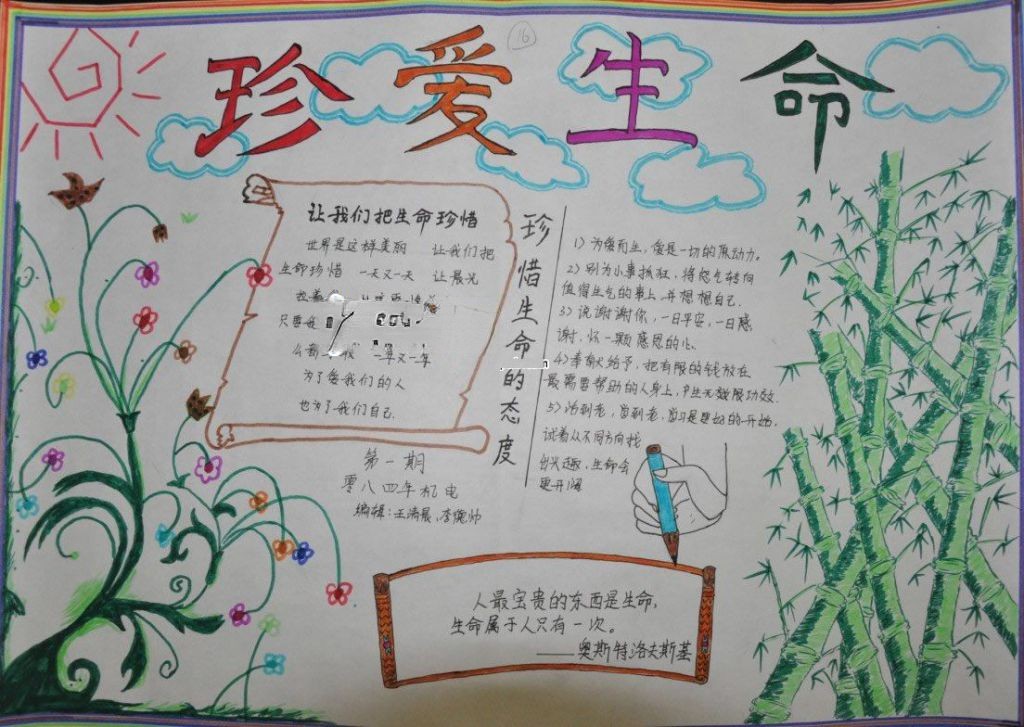 16
珍爱生命
让我们把生命珍惜
世界是这样美丽 让我们把
生命珍惜 一天又一天 让晨光
只要我
一年又一年
为了爱我们的人
也为了我们自己.
第一期
零八四年机电
编辑:王清晨,李俊帅
珍惜生命的态度
1)为爱而生,爱是一切的原动力。
2)别为小事抓狂,将怒气转向
值得生气的事上,并想想自己.
3)说谢谢你,一日平安,一日感
谢.怀一颗感恩的心.
4)奉献给予,把有限的钱放在
最需要帮助的人身上,产生无效限功效.
5)活到老,学到老,学习是更好的开始,
试着从不同方向找
出兴趣,生命会
更开阔
人最宝贵的东西是生命,
生命属于人只有一次。
——奥斯特洛夫斯基